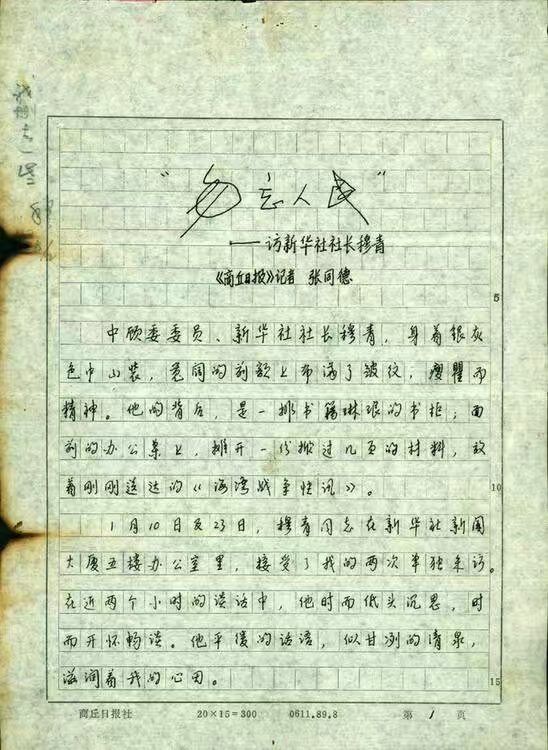 "勿忘人民"
——访新华社社长穆青
《商丘日报》记者 张同德
5
中顾委委员、新华社社长穆青,身着银灰
色中山装,宽阔的前额上布满了皱纹,瘦瞿而
精神。他的背后,是一排书籍琳琅的书柜;面
前的办公桌上,摊开一份掀过几页的材料,放
着刚刚送达的《海湾战争快讯》。
10
1月10日及23日,穆青同志在新华社新闻
大厦五楼办公室里,接受了我的两次单独采访。
在近两个小时的谈话中,他时而低头沉思,时
而开怀畅谈。他平缓的话语,似甘冽的清泉,
滋润着我的心田。
15
商丘日报社 20×15=300 0611.89.8 第 1 页